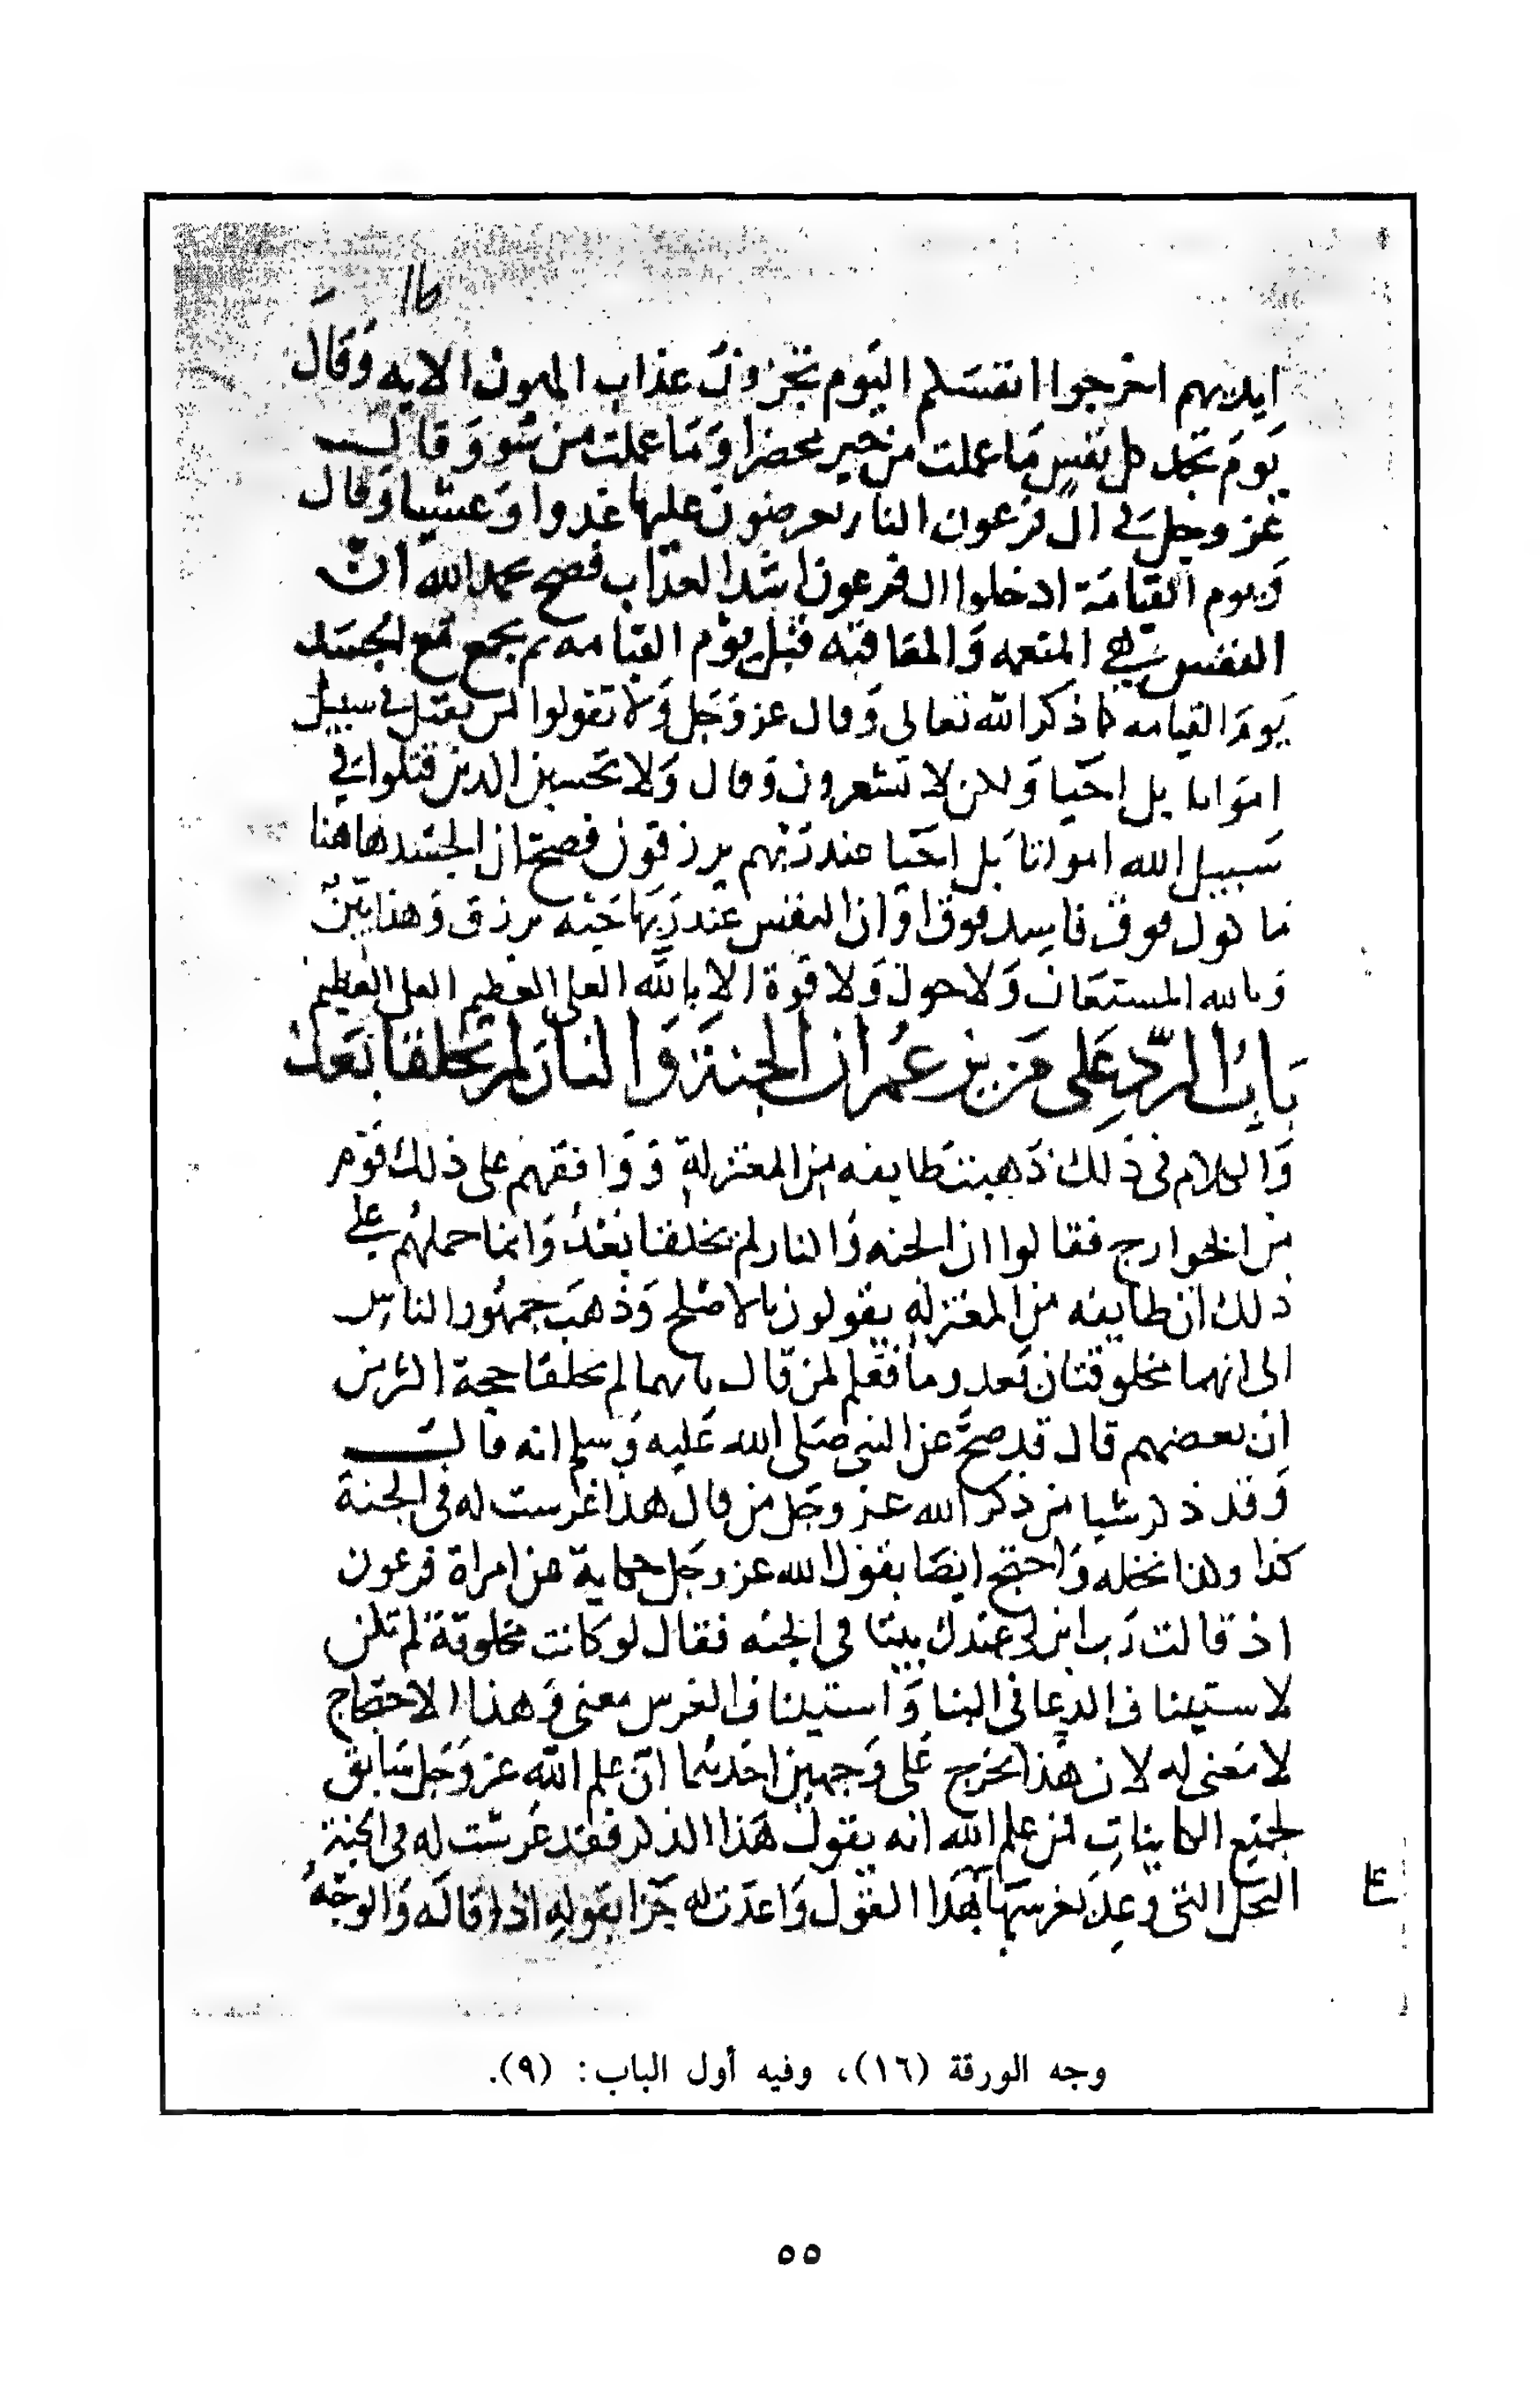 16
ايديهم اخرجوا انفسكم اليَوم تجزون عذاب الهون الايه وَقَال
يَومَ تجد كل نفسٍ مَا عملت من خير محضرا وَمَا عملت من سُو وَقَال
عز وجل في ال فرعون النار يعرضون عليها غدوا وَعشيا وَقال
وَيوم القيَامَة ادخلوا ال فرعون اشد العذاب فصح بحمد الله ان
النفس هي المنعمه وَالمعَاقبه قبل يوم القيامه ثم يجمع مع الجسَد
يَومَ القيامه كما ذكر الله تعالى وَقال عز وَجَل وَلا تقولوا لمن يقتل في سبيل
امَواتا بل احيَا وَلكن لا تشعرون وَقال وَلا تحسبن الذين قتلوا في
سَبيل الله امواتا بَل احيَا عند رَبهم يرزقون فصح ان الجسَد هاهنا
وَبالله المستعَان وَلا حول وَلا قوة الا بالله العلى العظيم العلى العظيم
بَابُ الردِّ عَلى مَن يزعُم ان الجنةَ وَالنارَ لم تخلقا بَعدُ
وَالكلام في ذَلك ذَهبت طايفه من المعتزلةِ وَوَافقهم على ذلك قوم
من الخوارج فقالوا ان الجنه وَالنار لم تخلقا بَعْدُ وَانما حملهُم على
ذلك ان طايفه من المعتزله يقولون بالاصْلح وَذهَبَ جمهُور الناس
الى انهما مخلوقتان بَعد وما نعلم لمن قال بانهما لم تخلقا حجة اكثر من
ان بعضهم قال قد صحَّ عن النبي صَلى الله عَليه وَسلم انه قال
وَقد ذكر شيا من ذكر الله عز وجَل من قال هذا غرست له في الجنة
كذا وكذا نخله وَاحتج ايضَا بقول الله عز وجَل حكاية عن امراة فرعون
اذ قالت رَب ابن لي عندك بيتا في الجنه فقال لو كانت مخلوقة لم تكن
لاستيناف الدعا في البنا وَاستيناف الغرس معنى وَهذا الاحتجاج
لا مَعنى له لان هذا يخرج عَلى وَجهين احَدهُما ان علم الله عز وَجَل سَابق
لجميع الكايناتِ فمن علم الله انه يقول هَذا الذكر فقد غرسَت له في الجنة
النخل التى وعِدَ بغرسهَا بهَذا القول وَاعدت له جَزا بقولهِ اذا قالَه وَالوجْهُ
وجه الورقة (١٦)، وفيه أول الباب: (٩).
٥٥